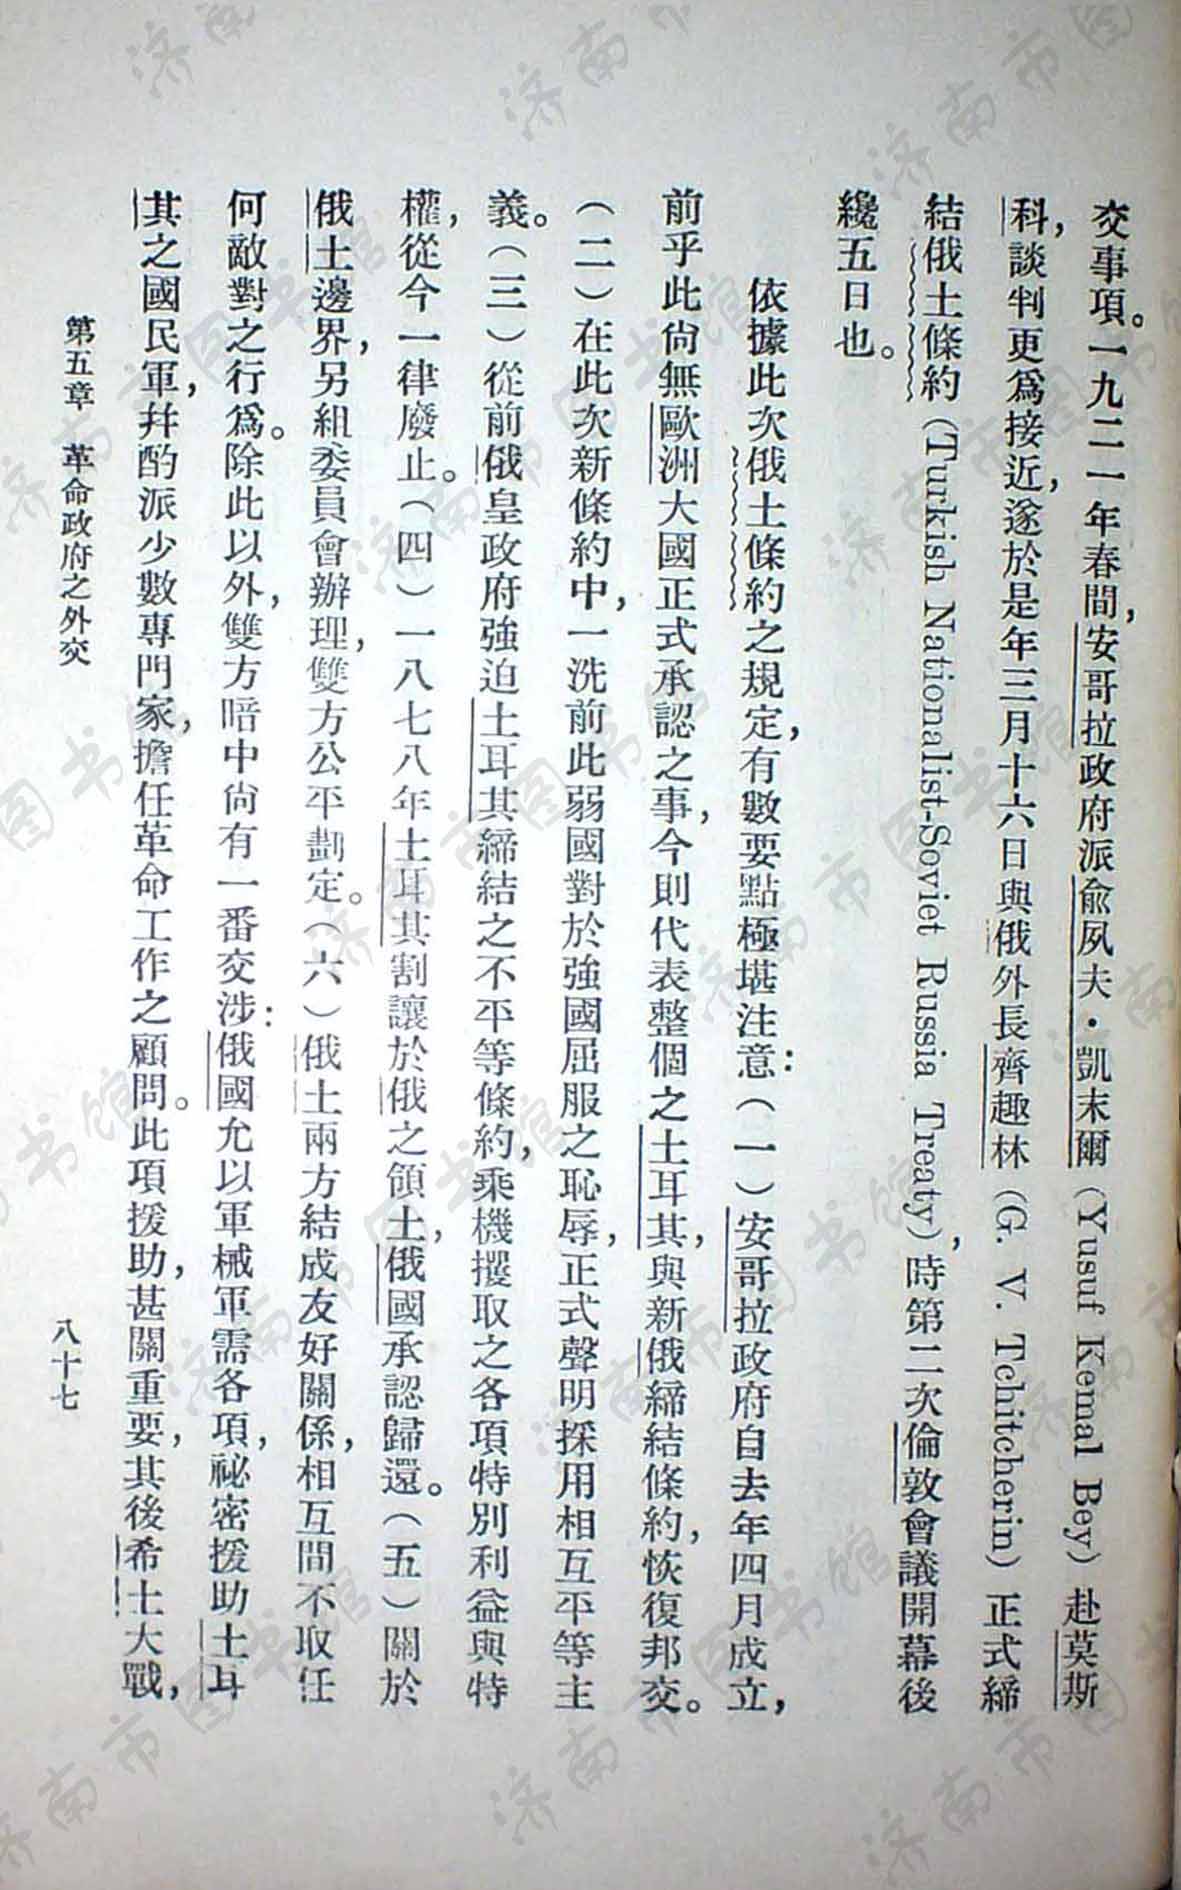 交事項。一九二一年春間，安哥拉政府派俞夙夫·凱末爾（Yusuf Kemal Bey）赴莫斯
科，談判更爲接近，遂於是年三月十六日與俄外長齊趣林（G. V. Tchitcherin）正式締
結俄土條約（Turkish Nationalist-Soviet Russia Treaty），時第二次倫敦會議開幕後
纔五日也。
依據此次俄土條約之規定，有數要點極堪注意：（一）安哥拉政府自去年四月成立，
前乎此尙無歐洲大國正式承認之事，今則代表整個之土耳其，與新俄締結條約，恢復邦交。
（二）在此次新條約中，一洗前此弱國對於強國屈服之恥辱，正式聲明採用相互平等主
義。（三）從前俄皇政府強迫土耳其締結之不平等條約，乘機攫取之各項特別利益與特
權，從今一律廢止。（四）一八七八年土耳其割讓於俄之領土，俄國承認歸還。（五）關於
俄土邊界，另組委員會辦理，雙方公平劃定。（六）俄土兩方結成友好關係，相互間不取任
何敵對之行爲。除此以外，雙方暗中尙有一番交涉：俄國允以軍械軍需各項，祕密援助土耳
其之國民軍，幷酌派少數專門家，擔任革命工作之顧問。此項援助，甚關重要，其後希土大戰，
第五章 革命政府之外交
八十七
济南市图书馆